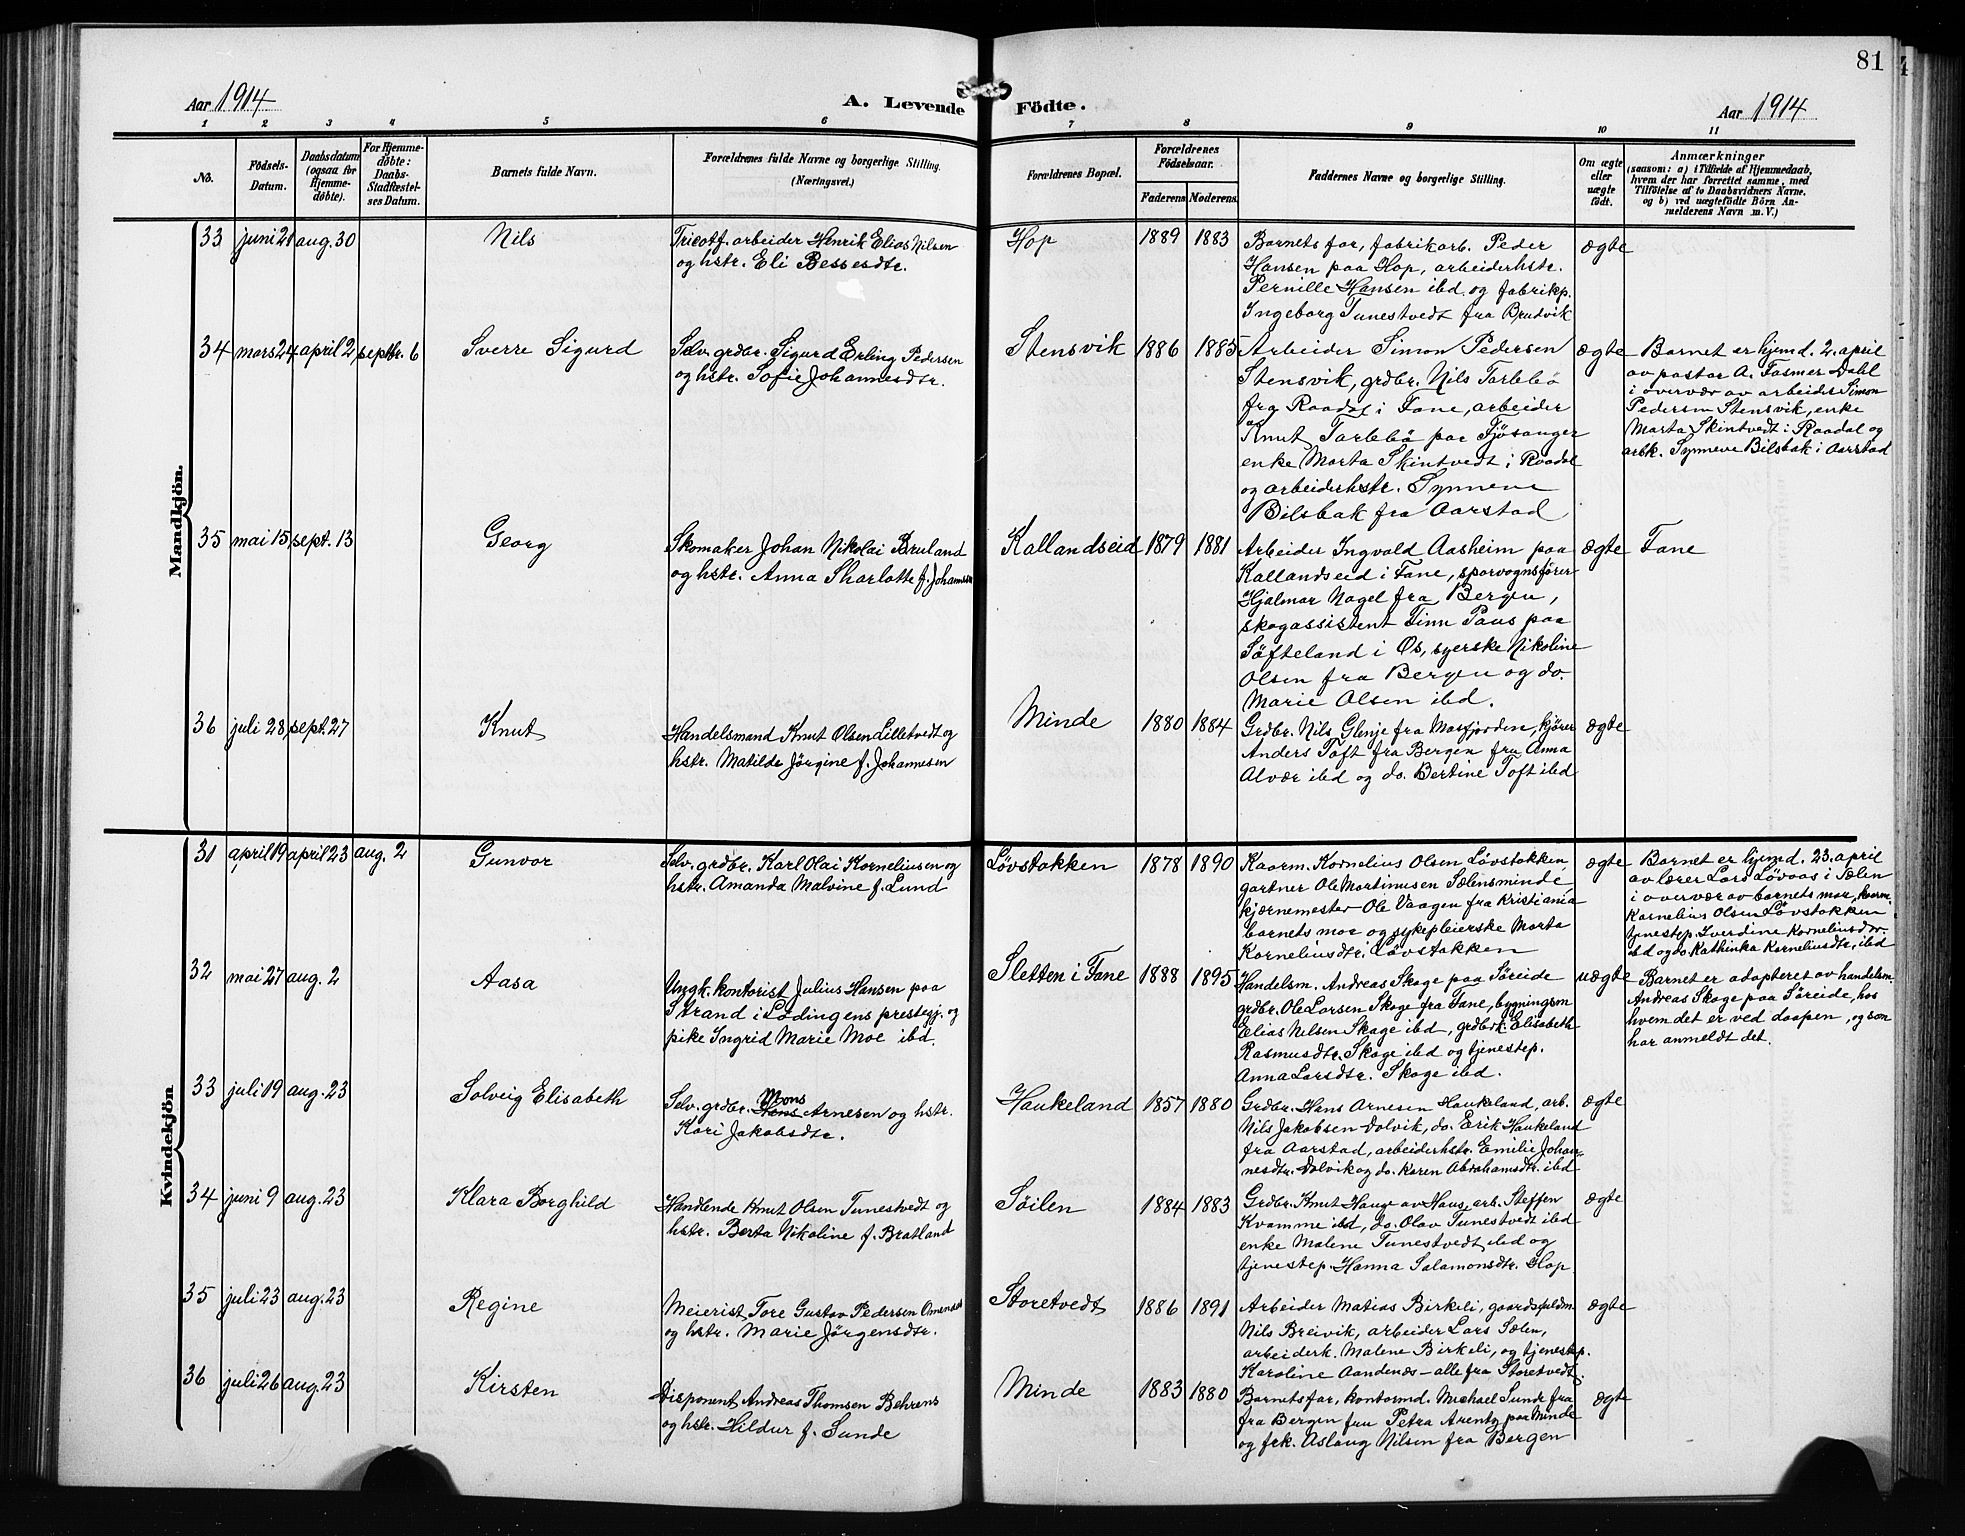 81
Aar 1914
A. Levende Födte.
Aar 1914
1 2 3 4 5 6 7 8 9 10 11
No.
Födsels-
Datum.
Daabsdatum
(ogsaa for
Hjemme-
døbte).
For Hjemme-
døbte:
Daabs-
Stadfæstel-
ses Datum.
Barnets fulde Navn.
Forældrenes fulde Navne og borgerlige Stilling.
(Næringsvei.)
Forældrenes Bopæl.
Forældrenes
Födselsaar.
Faderens Moderens
Faddernes Navne og borgerlige Stilling.
Om ægte
eller
uægte
født.
Anmærkninger
(saasom: a) i Tilfælde af Hjemmedaab,
hvem der har forrettet samme, med
Tilföielse af to Daabsvidners Navne,
og b) ved uægtefødte Børn An-
melderens Navn m. V.)
Mandkjön.
33 juni 21 aug. 30
Nils
Tricotf. arbeider Henrik Elias Nilsen
og hstr. Eli Bessesdtr.
Hop
1889 1883
Barnets far, fabrikarb. Peder
Hansen paa Hop, arbeiderhstr.
Pernille Hansen ibd. og fabrikp.
Ingeborg Tunestvedt fra Bruvik
ægte
34 mars 24 april 2 septbr. 6
Sverre Sigurd
Selv. grdbr. Sigurd Erling Pedersen
og hstr. Sofie Johannesdtr.
Stensvik
1886 1885
Arbeider Simon Pedersen
Stensvik, grdbr. Nils Tarlebø
fra Raadal i Fane, arbeider
Knut Tarlebø paa Fjøsanger
enke Marta Skintvedt i Raadal
og arbeiderhstr. Synneve
Bilsbak fra Aarstad
ægte
Barnet er hjemd. 2. april
av pastor A. Fasmer Dahl
i overvær av arbeider Simon
Pedersen Stensvik, enke
Marta Skintvedt i Raadal og
arbk. Synneve Bilsbak i Aarstad
35 mai 15 sept. 13
Georg
Skomaker Johan Nikolai Bruland
og hstr. Anna Sharlotte f. Johannsen
Kallandseid
1879 1881
Arbeider Ingvald Aasheim paa
Kallandseid i Fane, sporvognsfører
Hjalmar Nagel fra Bergen,
skogassistent Finn Paus paa
Søfteland i Os, syerske Nikoline
Olsen fra Bergen og do.
Marie Olsen ibd.
ægte
Fane
36 juli 28 sept. 27
Knut
Handelsmand Knut Olsen Lilletvedt og
hstr. Matilde Jørgine f. Johannesen
Minde
1880 1884
Grdbr. Nils Glenje fra Masfjorden, kjører
Anders Toft fra Bergen fru Anna
Alvær ibd og do. Bertine Toft ibd
ægte
Kvindekjön
31 april 19 april 23 aug. 2
Gunvor
Selv. grdbr. Karl Olai Korneliussen og
hstr. Amanda Malvine f. Lund
Løvstakken
1878 1890
Kaarm. Kornelius Olsen Løvstakken,
gartner Ole Martinusen Sælensminde,
kjærnemester Ole Vaagen fra Kristiania
barnets mor og sykepleierske Marta
Korneliusdtr. Løvstakken
ægte
Barnet er hjemd. 23. april
av lærer Lars Løvaas i Sælen
i overvær av barnets mor, kaarm.
Kornelius Olsen Løvstakken
tjenestep. Sverdine Korneliusdtr.
ibd og do. Kathinka Korneliusdtr. ibd
32 mai 27 aug. 2
Aasa
Ungk. kontorist Julius Hansen paa
Strand i Lødingens prestegj. og
pike Ingrid Marie Moe ibd.
Sletten i Fane
1888 1895
Handelsm. Andreas Skage paa Søreide
grdbr. Ole Larsen Skage fra Fane, bygningsm
Elias Nilsen Skage ibd, grdbrk. Elisabeth
Rasmusdtr. Skage ibd og tjenestep.
Anna Larsdtr. Skage ibd.
uægte
Barnet er adopteret av handelsm.
Andreas Skage paa Søreide, hos
hvem det er ved daapen, og som
har anmeldt det.
33 juli 19 aug. 23
Solveig Elisabeth
Mons
Selv. grdbr. Hans Arnesen og hstr.
Kari Jakobsdtr.
Haukeland
1857 1880
Grdbr. Hans Arnesen Haukeland, arb.
Nils Jakobsen Dolvik, do. Erik Haukeland
fra Aarstad, arbeiderhstr. Emilie Johan-
nesdtr. Dolvik og do. Karen Abrahamsdtr. ibd
ægte
34 juni 9 aug. 23
Klara Borghild
Handlende Knut Olsen Tunestvedt og
hstr. Berta Nikoline f. Bratland
Søilen
1884 1883
Grdbr. Knut Haug av Haug, arb. Steffen
Kvamme ibd, do. Olav Tunestvedt ibd
enke Malene Tunestvedt ibd og
tjenestep. Hanna Salamonsdtr. Hop
ægte
35 juli 23 aug. 23
Regine
Meierist Tore Gustav Pedersen
og hstr. Marie Jørgensdtr.
Storetvedt
1886 1891
Arbeider Matias Birkeli, gaardsfuldm.
Nils Breivik, arbeider Lars Sælen,
arbeiderk. Malene Birkeli, og tjenestep.
Karoline Aandenæs – alle fra Storetvedt.
ægte
36 juli 26 aug. 23
Kirsten
Disponent Andreas Thomsen Behrens
og hstr. Hildur f. Sunde
Minde
1883 1880
Barnets far, kontormd. Michael Sunde fra
fra Bergen fru Petra Arentz paa Minde
og frk. Aslaug Nilsen fra Bergen
ægte